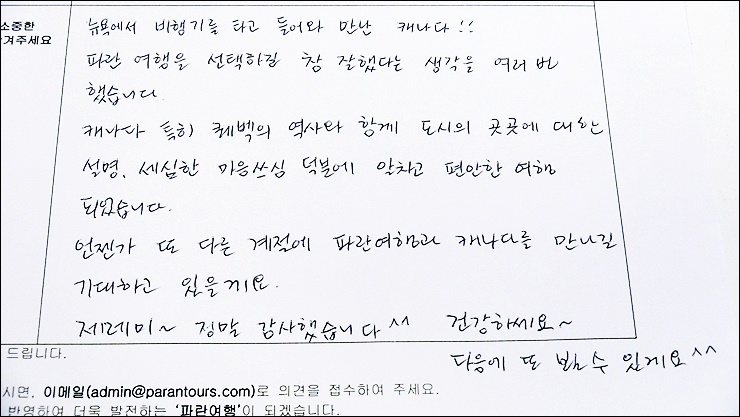 소중한
겨주세요
뉴욕에서 비행기를 타고 들어와 만난 캐나다!!
파란 여행을 선택하길 참 잘했다는 생각을 여러번
했습니다.
캐나다 특히 퀘벡의 역사와 함께 도시의 곳곳에 대한
설명, 세심한 마음쓰심 덕분에 알차고 편안한 여행
되었습니다.
언젠가 또 다른 계절에 파란여행과 캐나다를 만나길
기대하고 있을게요.
제레미~ 정말 감사했습니다^^ 건강하세요~
다음에 또 뵐 수 있게요^^
드립니다.
시면, 이메일(admin@parantours.com)로 의견을 접수하여 주세요.
반영하여 더욱 발전하는 '파란여행'이 되겠습니다.